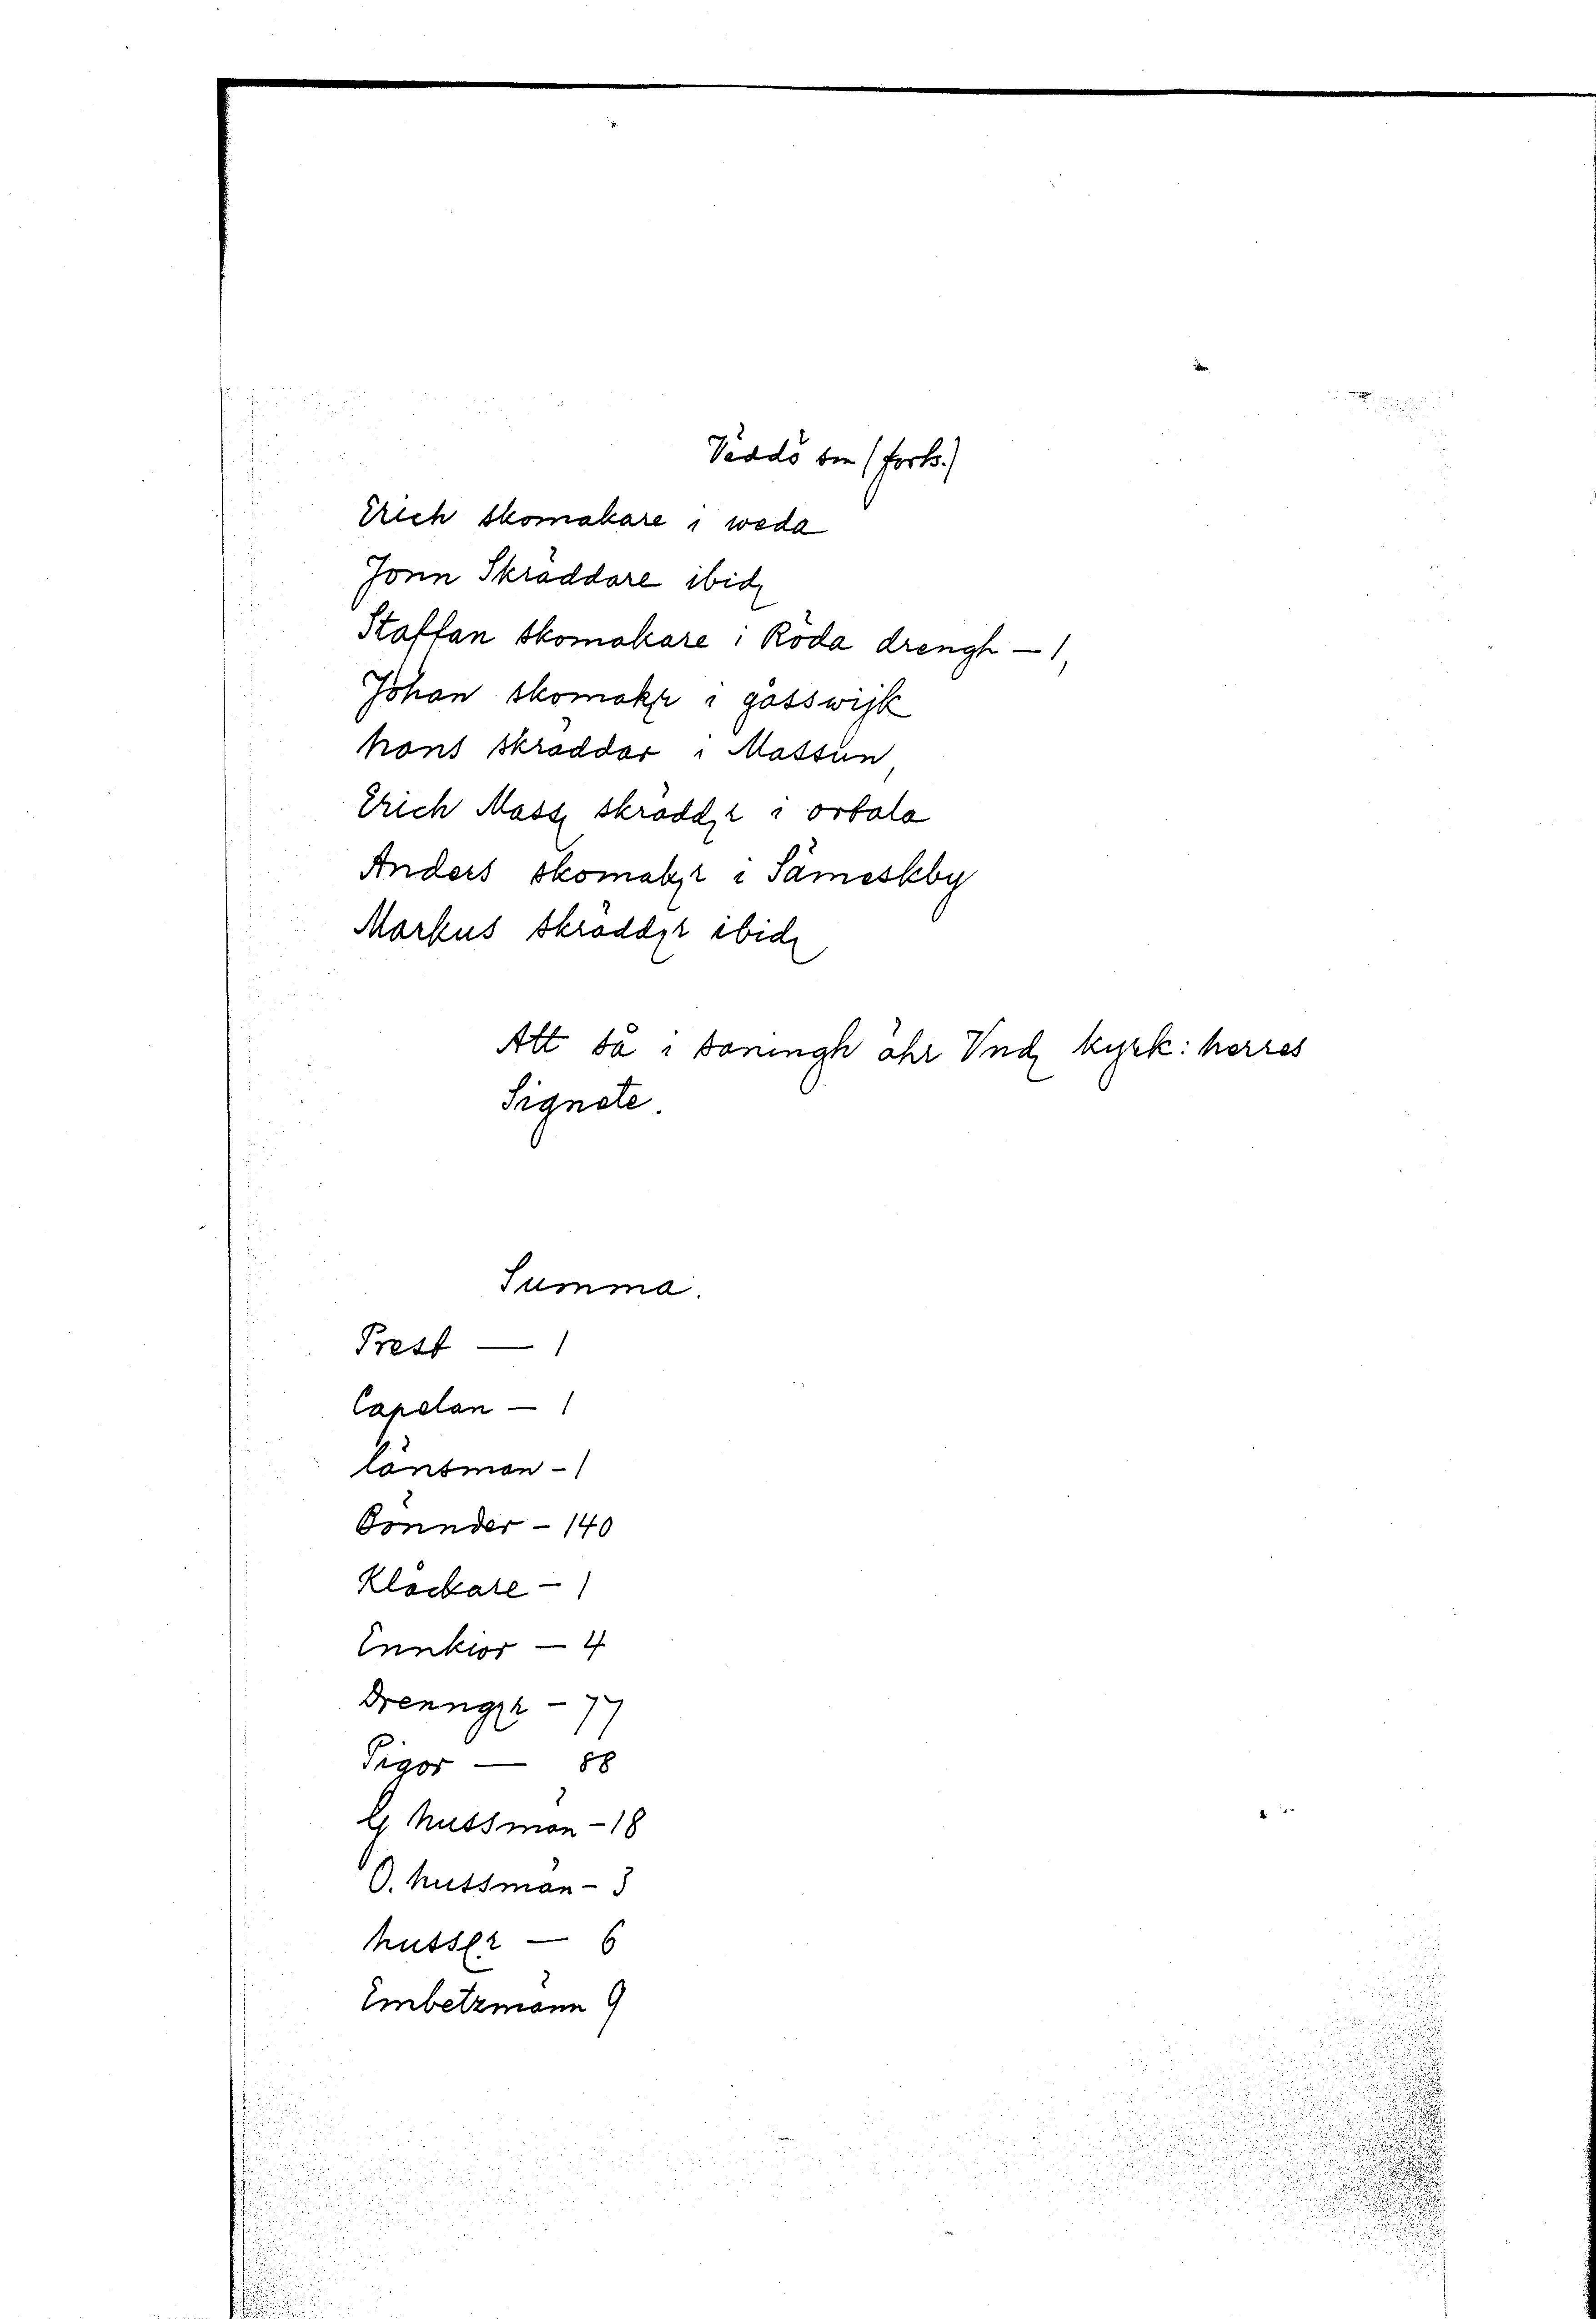 Väddö sn (forts.)
Erich skomakare i weda
Jonn Skräddare ibidꝫ
Staffan skomakare i Röda drengh — 1,
Johan skomakꝫr i gåsswijk
hans skräddar i Massun,
Erich Massꝫ skräddꝫr i ortala
Anders skomakꝫr i Sämeskby
Markus skräddꝫr ibidꝫ
Att så i saningh ähr Vndꝫ kyrk: herres
Signete.
Summa.
Prest — 1
Capelan — 1
länsman - 1
Bönnder - 140
Klåckare - 1
Ennkior — 4
Drenngꝫr - 77
Pigor — 88
G hussmän - 18
O. hussmän - 3
hussꝫr — 6
Embetzmänn 9